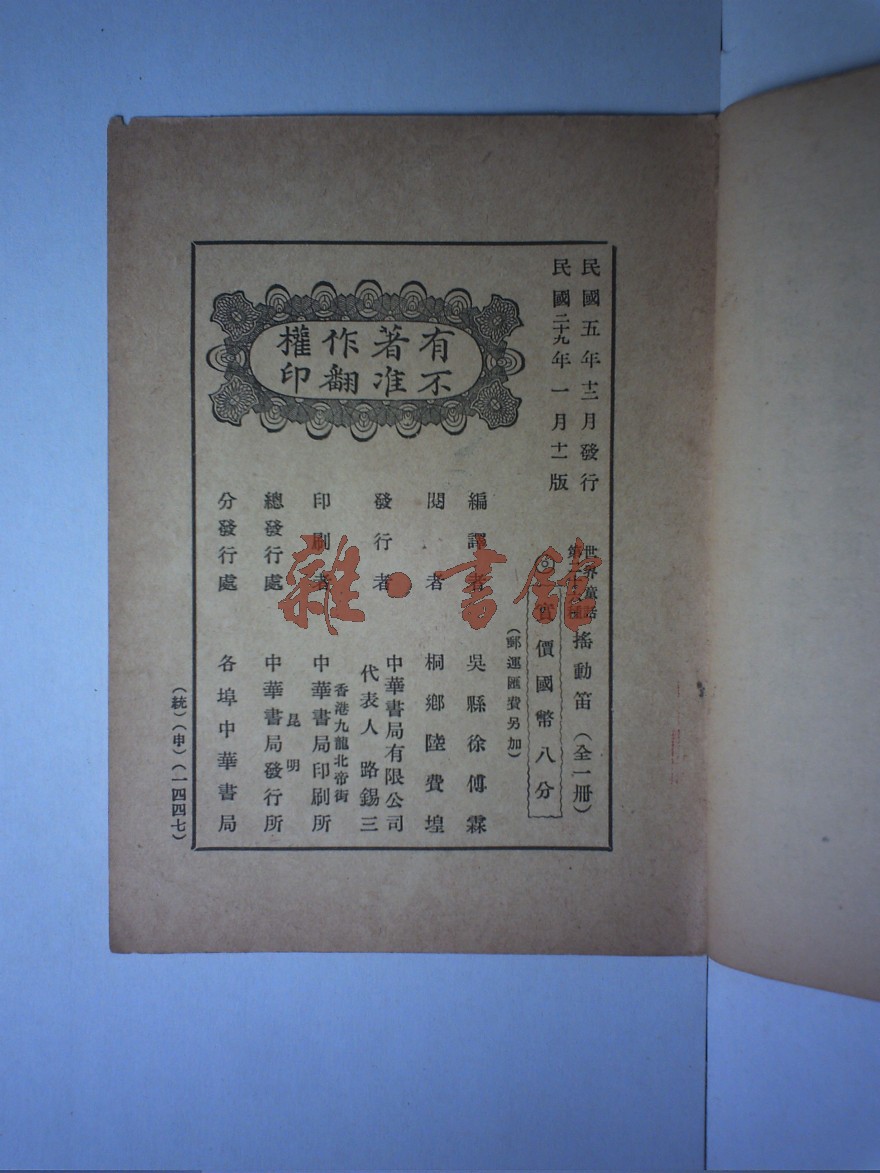 民國五年十二月發行
民國二十九年一月十一版
世界童話
搖動笛(全一冊)
實價國幣八分
(郵運匯費另加)
有著作權
不准翻印
編譯者 吳縣徐傅霖
閱者 桐鄉陸費堭
發行者 中華書局有限公司
代表人 路錫三
香港九龍北帝街
印刷者 中華書局印刷所
昆明
總發行處 中華書局發行所
分發行處 各埠中華書局
(統)(申)(一四四七)
雜·書館